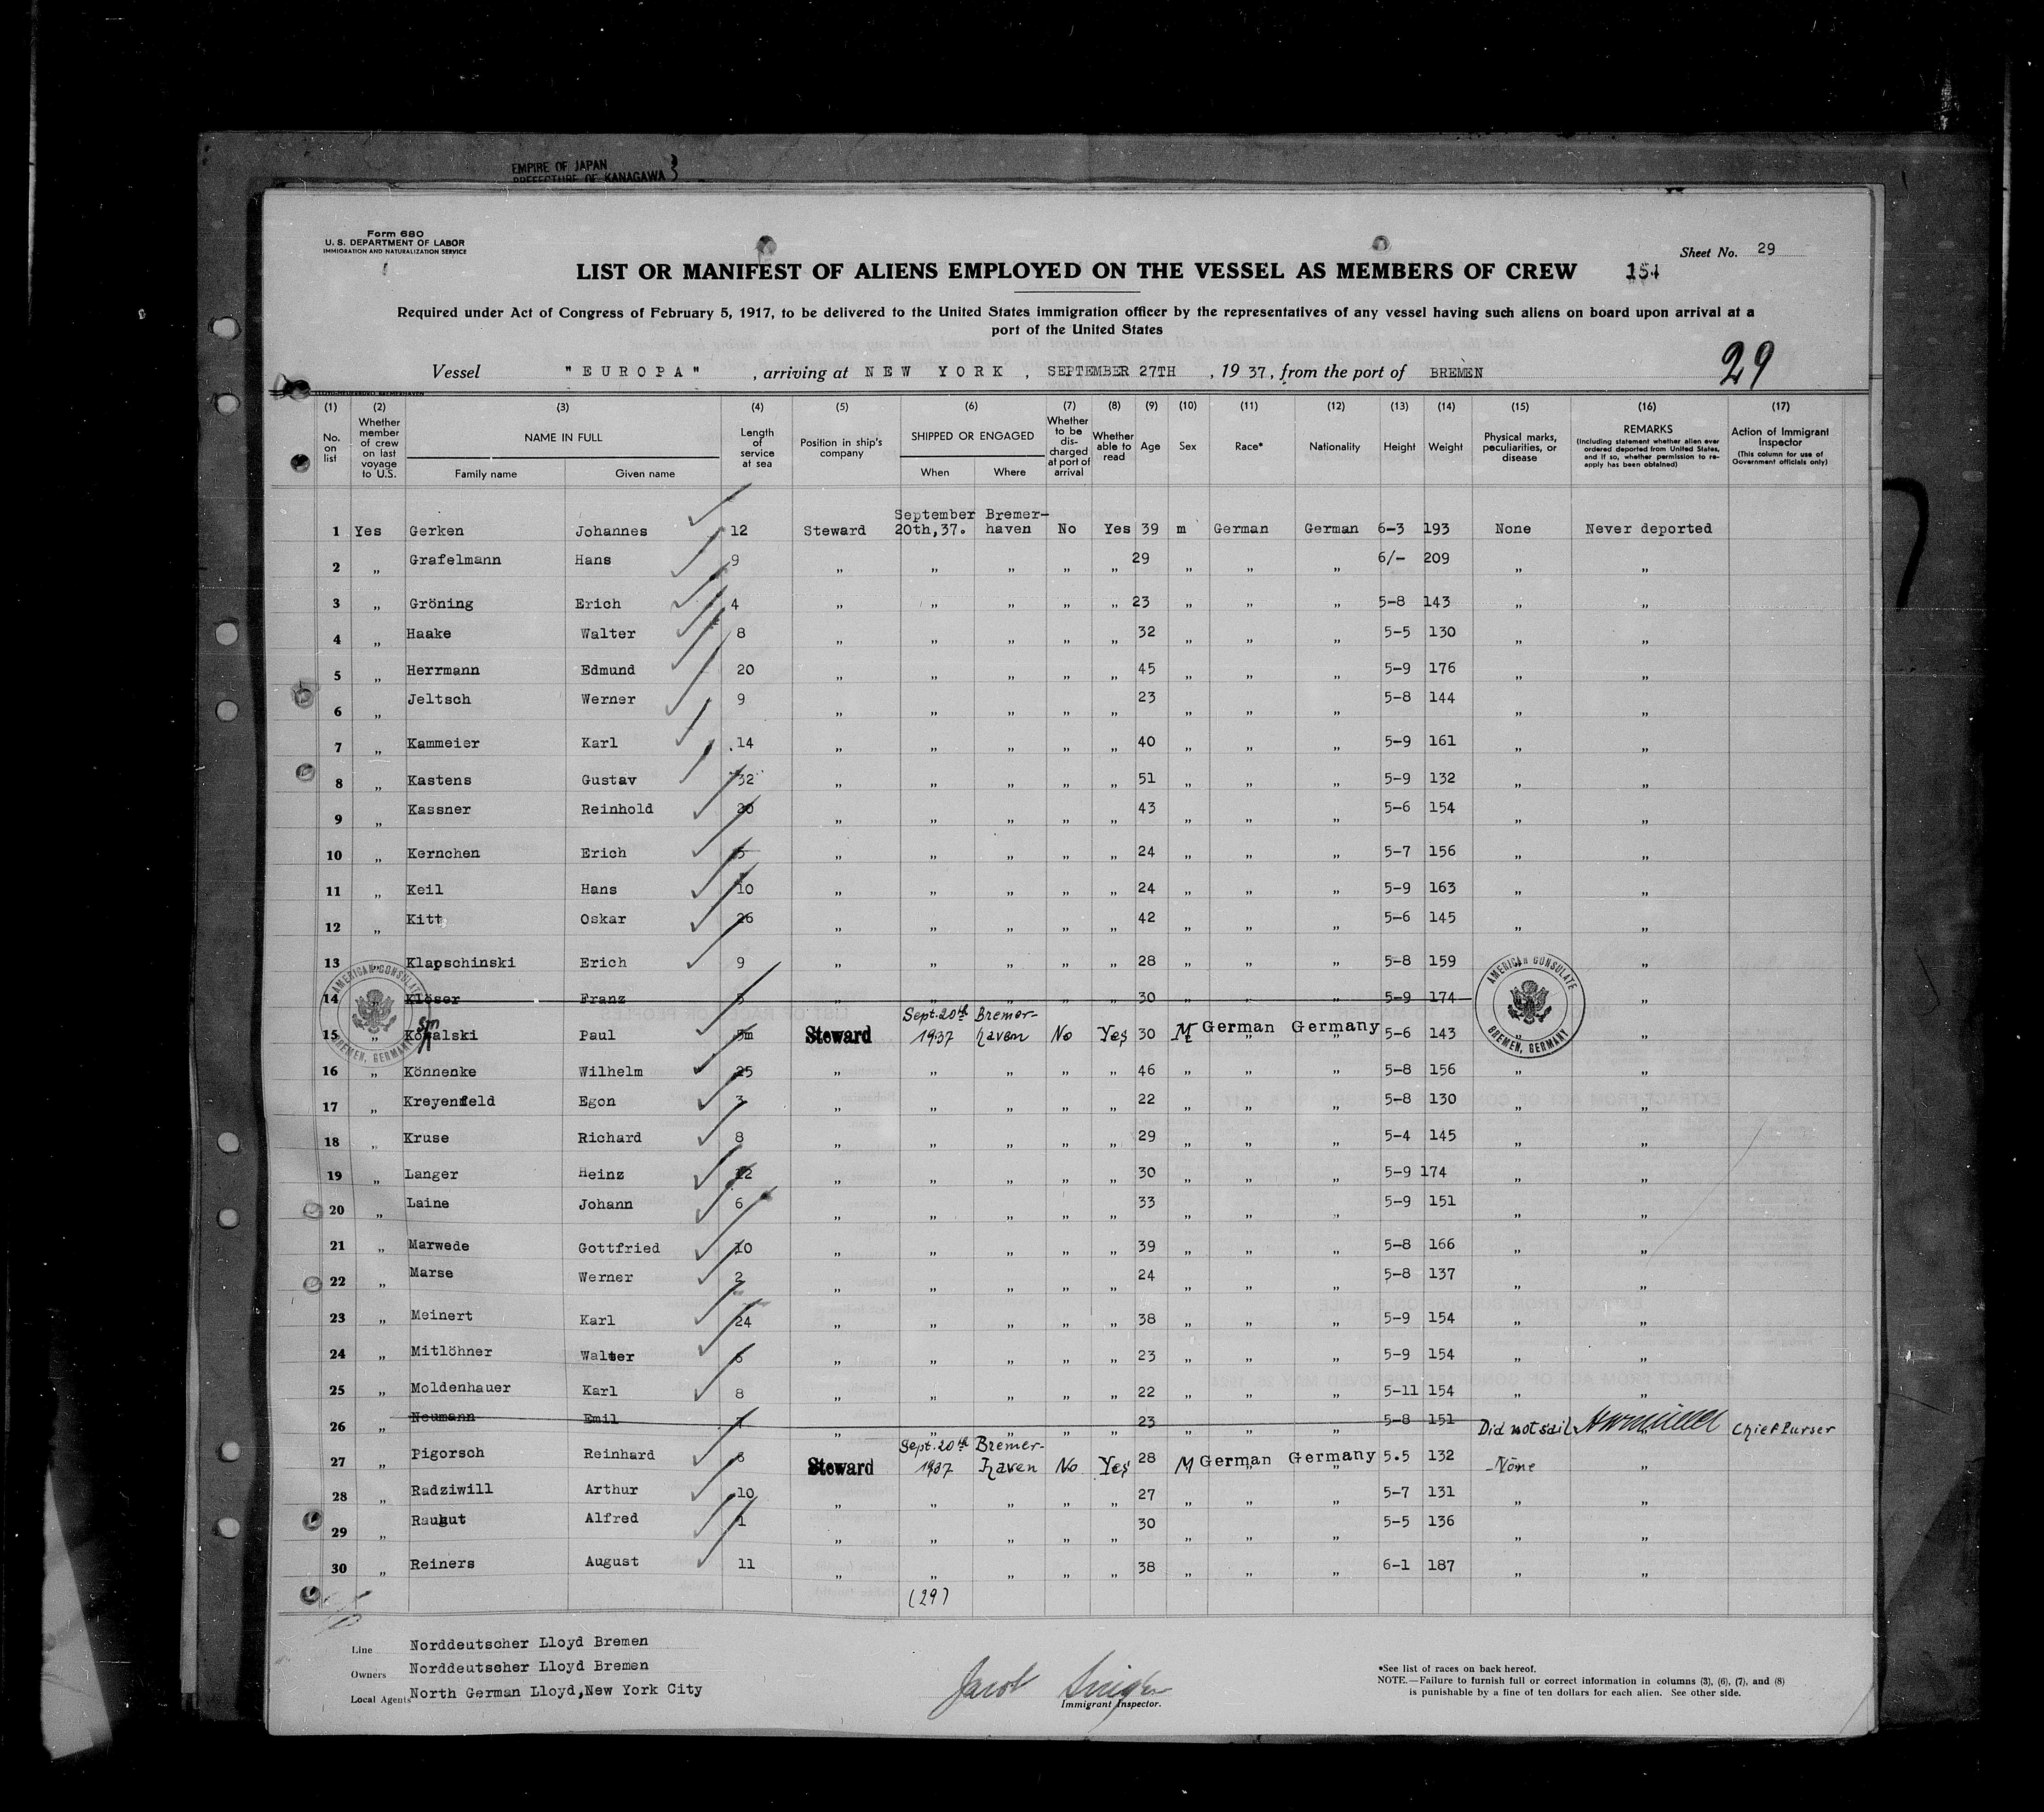 EMPIRE OF JAPAN
PREFECTURE OF KANAGAWA 3
Form 680
U. S. DEPARTMENT OF LABOR
IMMIGRATION AND NATURALIZATION SERVICE
Sheet No. 29
LIST OR MANIFEST OF ALIENS EMPLOYED ON THE VESSEL AS MEMBERS OF CREW 154
Required under Act of Congress of February 5, 1917, to be delivered to the United States immigration officer by the representatives of any vessel having such aliens on board upon arrival at a
port of the United States
29
Vessel "EUROPA" , arriving at NEW YORK , SEPTEMBER 27TH , 1937, from the port of BREMEN
(1) (2) (3) (4) (5) (6) (7) (8) (9) (10) (11) (12) (13) (14) (15) (16) (17)
No. on list
Whether member of crew on last voyage to U.S.
NAME IN FULL
Family name Given name
Length of service at sea
Position in ship's company
SHIPPED OR ENGAGED
When Where
Whether to be discharged at port of arrival
Whether able to read
Age
Sex
Race*
Nationality
Height
Weight
Physical marks, peculiarities, or disease
REMARKS
(Including statement whether alien ever ordered deported from United States, and if so, whether permission to reapply has been obtained)
Action of Immigrant Inspector
(This column for use of Government officials only)
1 Yes Gerken Johannes 12 Steward September 20th,37. Bremerhaven No Yes 39 m German German 6-3 193 None Never deported
2 „ Grafelmann Hans 9 „ „ „ „ „ 29 „ „ „ 6/- 209 „ „
3 „ Gröning Erich 4 „ „ „ „ „ 23 „ „ „ 5-8 143 „ „
4 „ Haake Walter 8 „ „ „ „ „ 32 „ „ „ 5-5 130 „ „
5 „ Herrmann Edmund 20 „ „ „ „ „ 45 „ „ „ 5-9 176 „ „
6 „ Jeltsch Werner 9 „ „ „ „ „ 23 „ „ „ 5-8 144 „ „
7 „ Kammeier Karl 14 „ „ „ „ „ 40 „ „ „ 5-9 161 „ „
8 „ Kastens Gustav 32 „ „ „ „ „ 51 „ „ „ 5-9 132 „ „
9 „ Kassner Reinhold 20 „ „ „ „ „ 43 „ „ „ 5-6 154 „ „
10 „ Kernchen Erich 5 „ „ „ „ „ 24 „ „ „ 5-7 156 „ „
11 „ Keil Hans 10 „ „ „ „ „ 24 „ „ „ 5-9 163 „ „
12 „ Kitt Oskar 26 „ „ „ „ „ 42 „ „ „ 5-6 145 „ „
13 „ Klapschinski Erich 9 „ „ „ „ „ 28 „ „ „ 5-8 159 „ „
14 „ Klöser Franz 5 „ „ „ „ „ 30 „ „ „ 5-9 174 „
AMERICAN CONSULATE BREMEN, GERMANY
AMERICAN CONSULATE BREMEN, GERMANY
15 „ Kowalski Paul 5m Steward Sept. 20th 1937 Bremerhaven No Yes 30 M German Germany 5-6 143 „ „
16 „ Könnenke Wilhelm 25 „ „ „ „ „ 46 „ „ „ 5-8 156 „ „
17 „ Kreyenfeld Egon 3 „ „ „ „ „ 22 „ „ „ 5-8 130 „ „
18 „ Kruse Richard 8 „ „ „ „ „ 29 „ „ „ 5-4 145 „ „
19 „ Langer Heinz 12 „ „ „ „ „ 30 „ „ „ 5-9 174 „ „
20 „ Laine Johann 6 „ „ „ „ „ 33 „ „ „ 5-9 151 „ „
21 „ Marwede Gottfried 10 „ „ „ „ „ 39 „ „ „ 5-8 166 „ „
22 „ Marse Werner 2 „ „ „ „ „ 24 „ „ „ 5-8 137 „ „
23 „ Meinert Karl 24 „ „ „ „ „ 38 „ „ „ 5-9 154 „ „
24 „ Mitlöhner Walter 6 „ „ „ „ „ 23 „ „ „ 5-9 154 „ „
25 „ Moldenhauer Karl 8 „ „ „ „ „ 22 „ „ „ 5-11 154 „ „
26 „ Neumann Emil 7 „ „ „ „ „ 23 „ „ „ 5-8 151 Did not sail Chief Purser
27 „ Pigorsch Reinhard 8 Steward Sept. 20th 1937 Bremerhaven No Yes 28 M German Germany 5.5 132 None „
28 „ Radziwill Arthur 10 „ „ „ „ „ 27 „ „ „ 5-7 131 „ „
29 „ Rauhut Alfred 1 „ „ „ „ „ 30 „ „ „ 5-5 136 „ „
30 „ Reiners August 11 „ „ „ „ „ 38 „ „ „ 6-1 187 „ „
(29)
Line Norddeutscher Lloyd Bremen
Owners Norddeutscher Lloyd Bremen
Local Agents North German Lloyd,New York City
Jacob
Immigrant Inspector.
*See list of races on back hereof.
NOTE.—Failure to furnish full or correct information in columns (3), (6), (7), and (8)
is punishable by a fine of ten dollars for each alien. See other side.